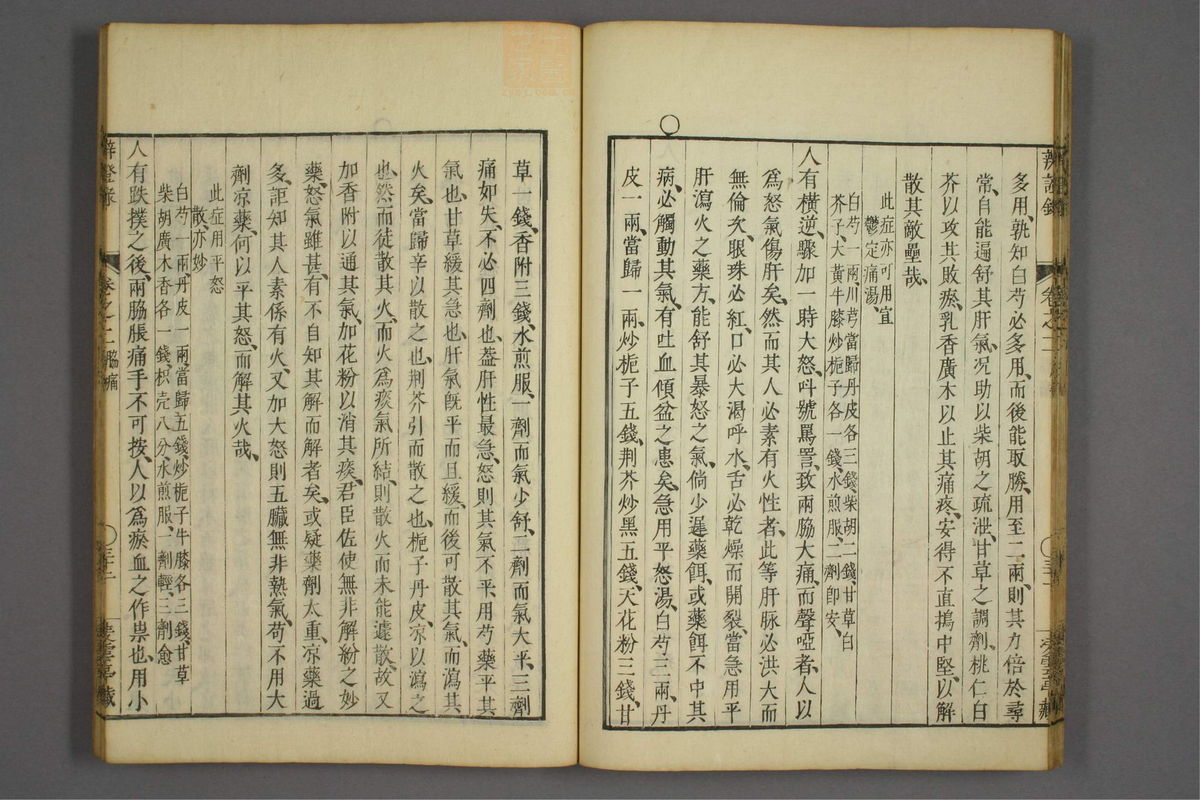 多用、孰知白芍必多用、而後能取勝、用至二兩、則其力倍於尋
常、自能遍舒其肝氣、況助以柴胡之疏泄、甘草之調劑、桃仁白
芥以攻其敗瘀、乳香廣木以止其痛疼、安得不直搗中堅、以解
散其敵壘哉、
此症亦可用宣
鬱定痛湯、
白芍一兩、川芎當歸丹皮各三錢、柴胡二錢、甘草白
芥子大黃牛膝炒梔子各一錢、水煎服、二劑卽安、
人有橫逆驟加、一時大怒、呌號罵詈、致兩脇大痛、而聲啞者、人以
爲怒氣傷肝矣、然而其人必素有火性者、此等肝脉必洪大而
無倫次、眼珠必紅、口必大渴呼水、舌必乾燥而開裂、當急用平
肝瀉火之藥、方能舒其暴怒之氣、倘少遲藥餌、或藥餌不中其
病、必觸動其氣、有吐血傾盆之患矣、急用平怒湯、白芍三兩、丹
皮一兩、當歸一兩、炒梔子五錢、荆芥炒黑五錢、天花粉三錢、甘
草一錢、香附三錢、水煎服、一劑而氣少舒、二劑而氣大平、三劑
痛如失、不必四劑也、葢肝性最急、怒則其氣不平、用芍藥平其
氣也、甘草緩其急也、肝氣旣平而且緩、而後可散其氣、而瀉其
火矣、當歸辛以散之也、荆芥引而散之也、梔子丹皮、凉以瀉之
也、然而徒散其火、而火爲痰氣所結、則散火而未能遽散、故又
加香附以通其氣、加花粉以消其痰、君臣佐使無非解紛之妙
藥、怒氣雖甚、有不自知其解而解者矣、或疑藥劑太重、凉藥過
多、詎知其人素係有火、又加大怒、則五臟無非熱氣、苟不用大
劑凉藥、何以平其怒、而解其火哉、
此症用平怒
散亦妙
白芍一兩、丹皮一兩、當歸五錢、炒梔子牛膝各三錢、甘草
柴胡廣木香各一錢、枳壳八分、水煎服、一劑輕、三劑愈
人有跌撲之後、兩脇脹痛、手不可按、人以爲瘀血之作祟也、用小
辨證錄 卷之二 脇痛